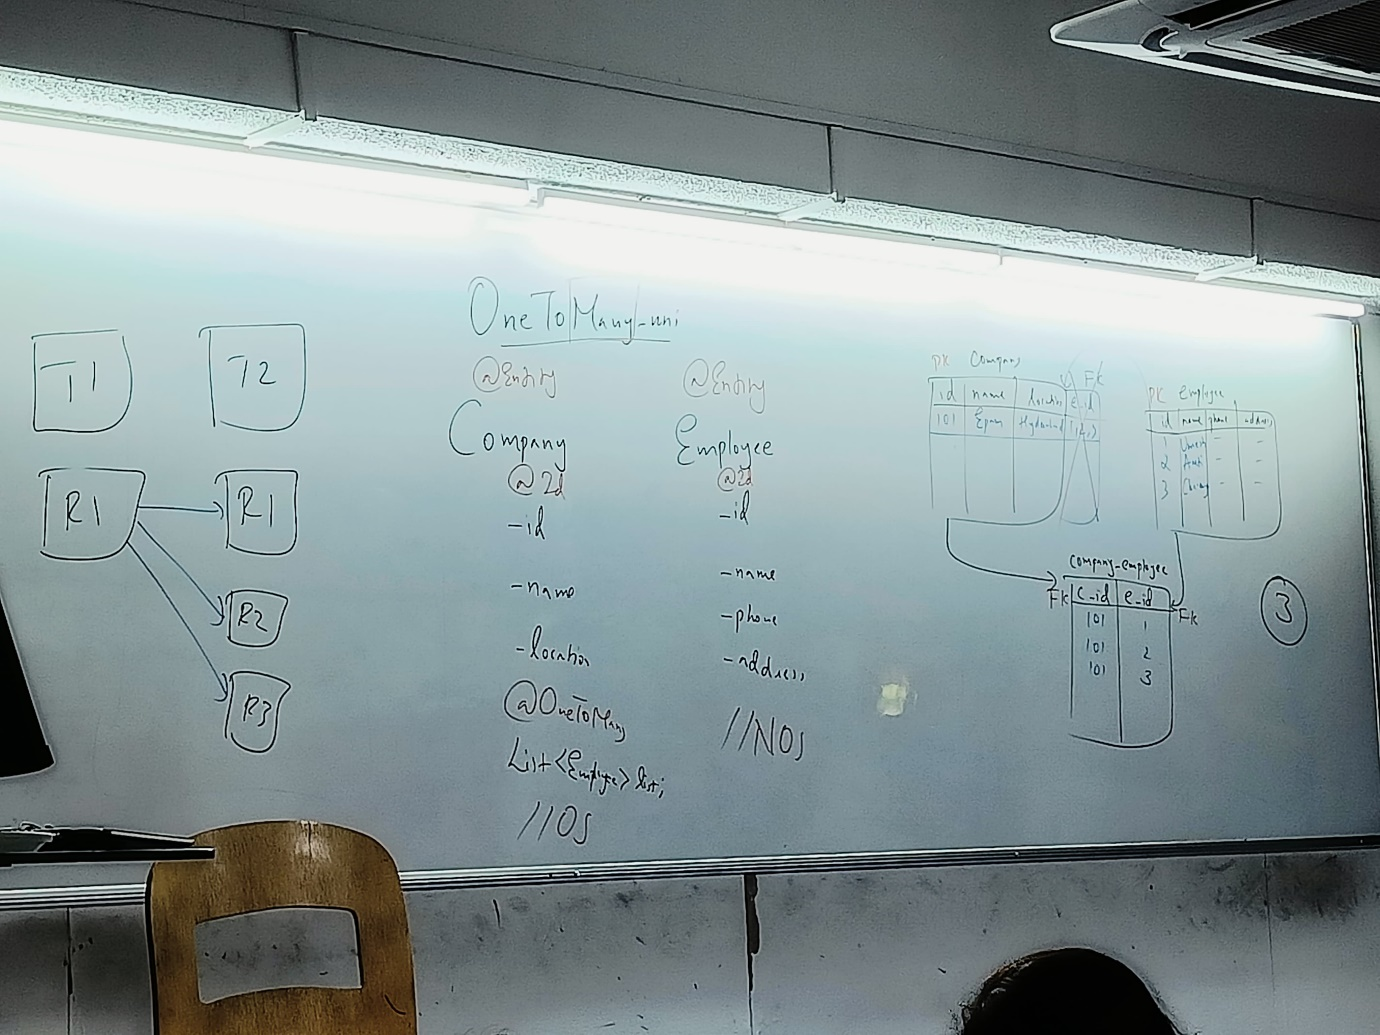 OneToMany-uni
T1 T2
R1 R1
R2
R3
@Entity
Company
@Id
-id
-name
-location
@OneToMany
List<Employee> list;
//OS
@Entity
Employee
@Id
-id
-name
-phone
-address
//NOS
PK Company FK
id name location e_id
101 Epam Hyderabad
PK Employee
id name phone address
1 - -
2 - -
3 - -
company_employee
FK c_id e_id FK
101 1
101 2
101 3
3